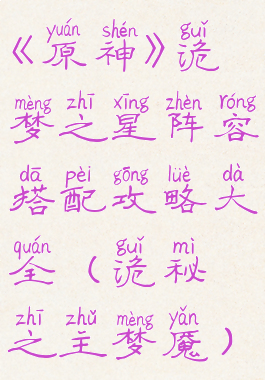 yuán shén guǐ
《原神》诡
mèng zhī xīng zhèn róng
梦之星阵容
dā pèi gōng lüè dà
搭配攻略大
quán guǐ mì
全（诡秘
zhī zhǔ mèng yǎn
之主梦魇）